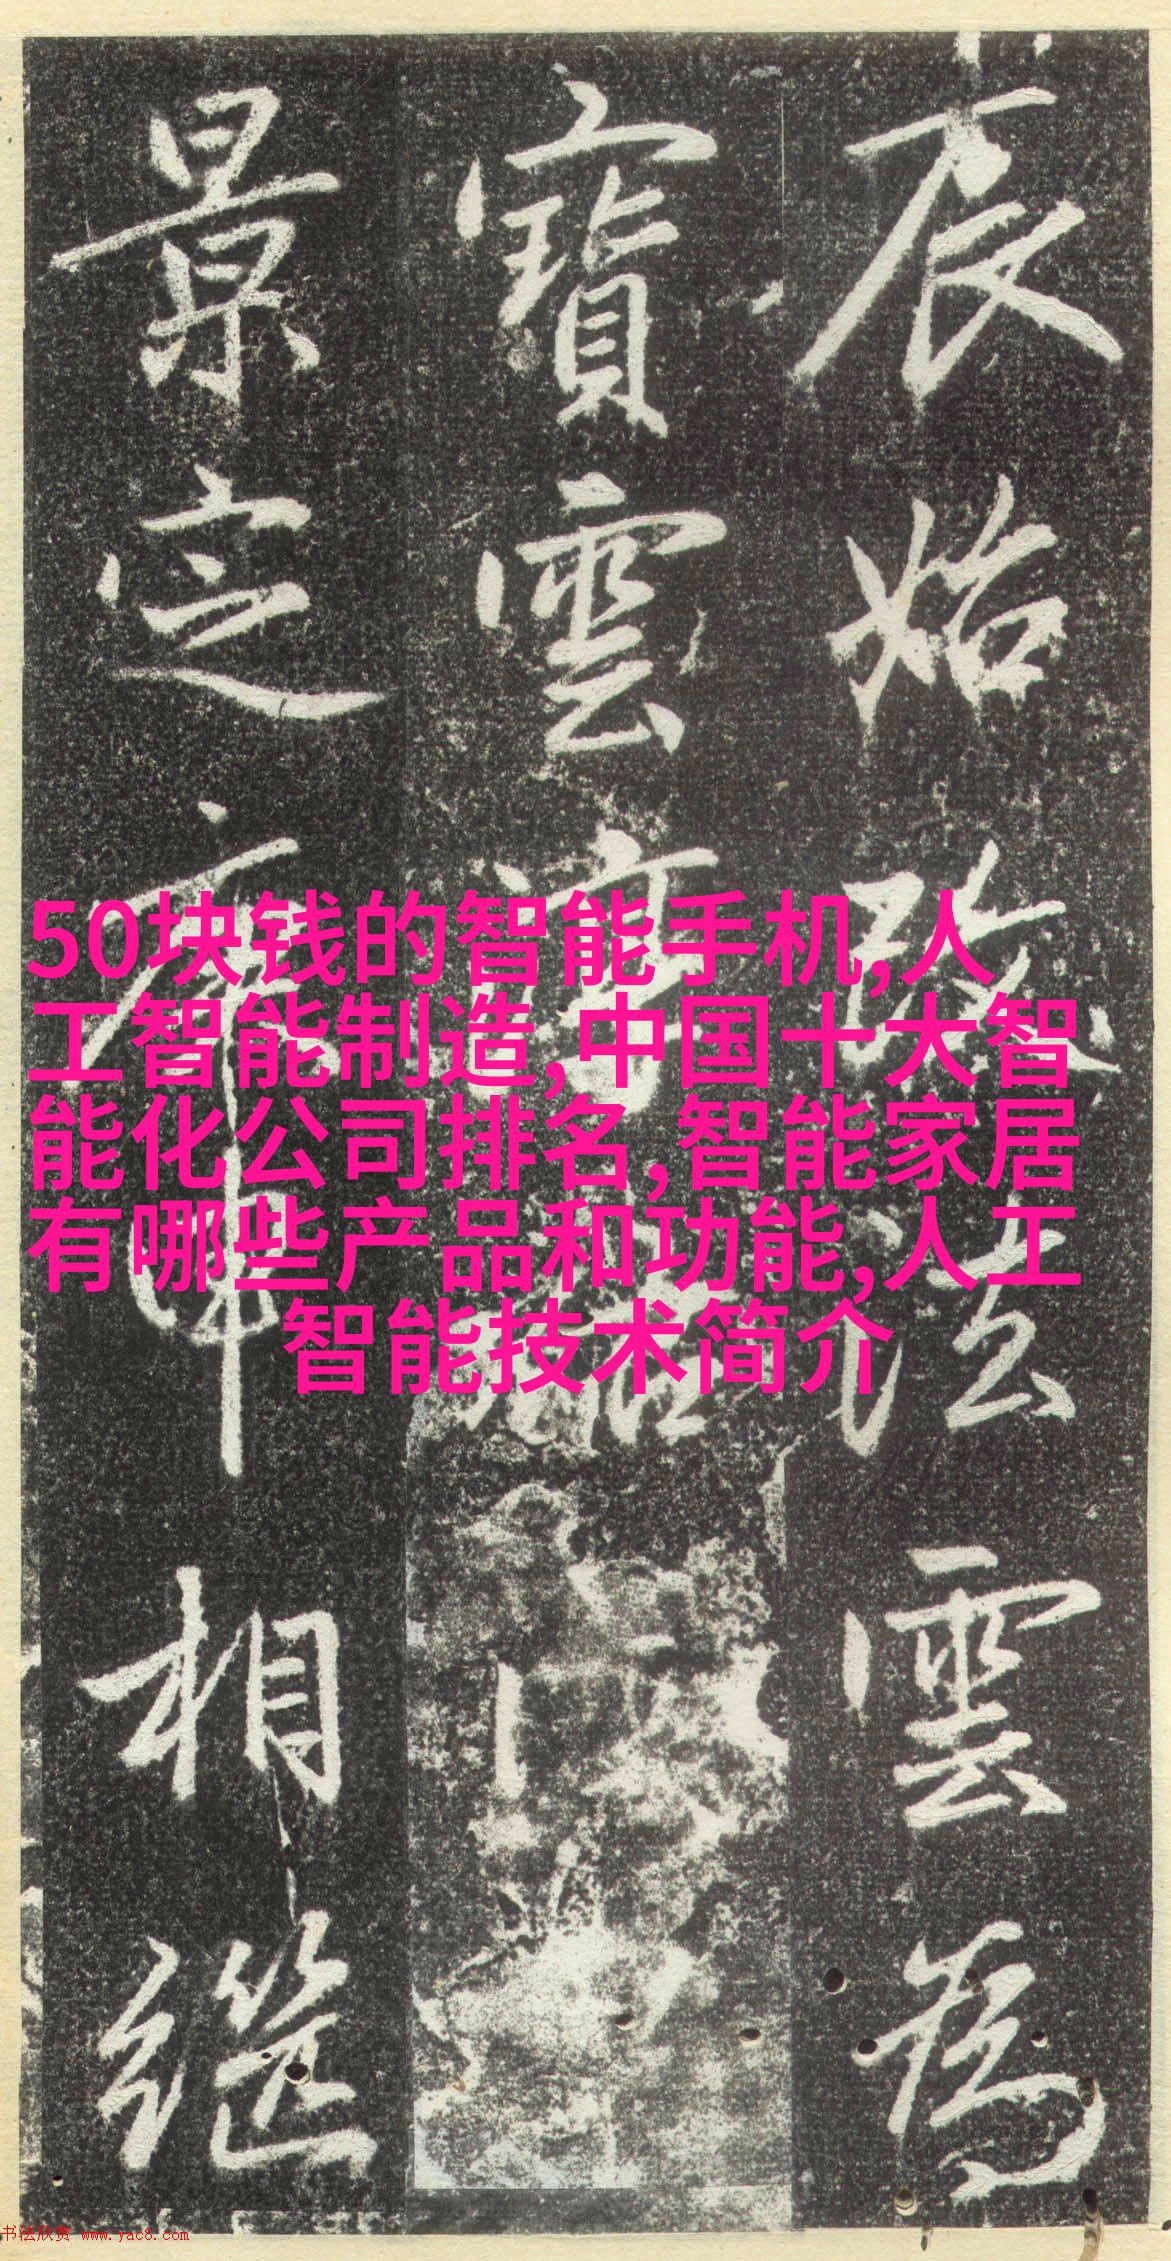 辰始改法雲為
寶雲
景定庚申相繼
50块钱的智能手机,人
工智能制造,中国十大智
能化公司排名,智能家居
有哪些产品和功能,人工
智能技术简介
书法欣赏 www.yac8.com